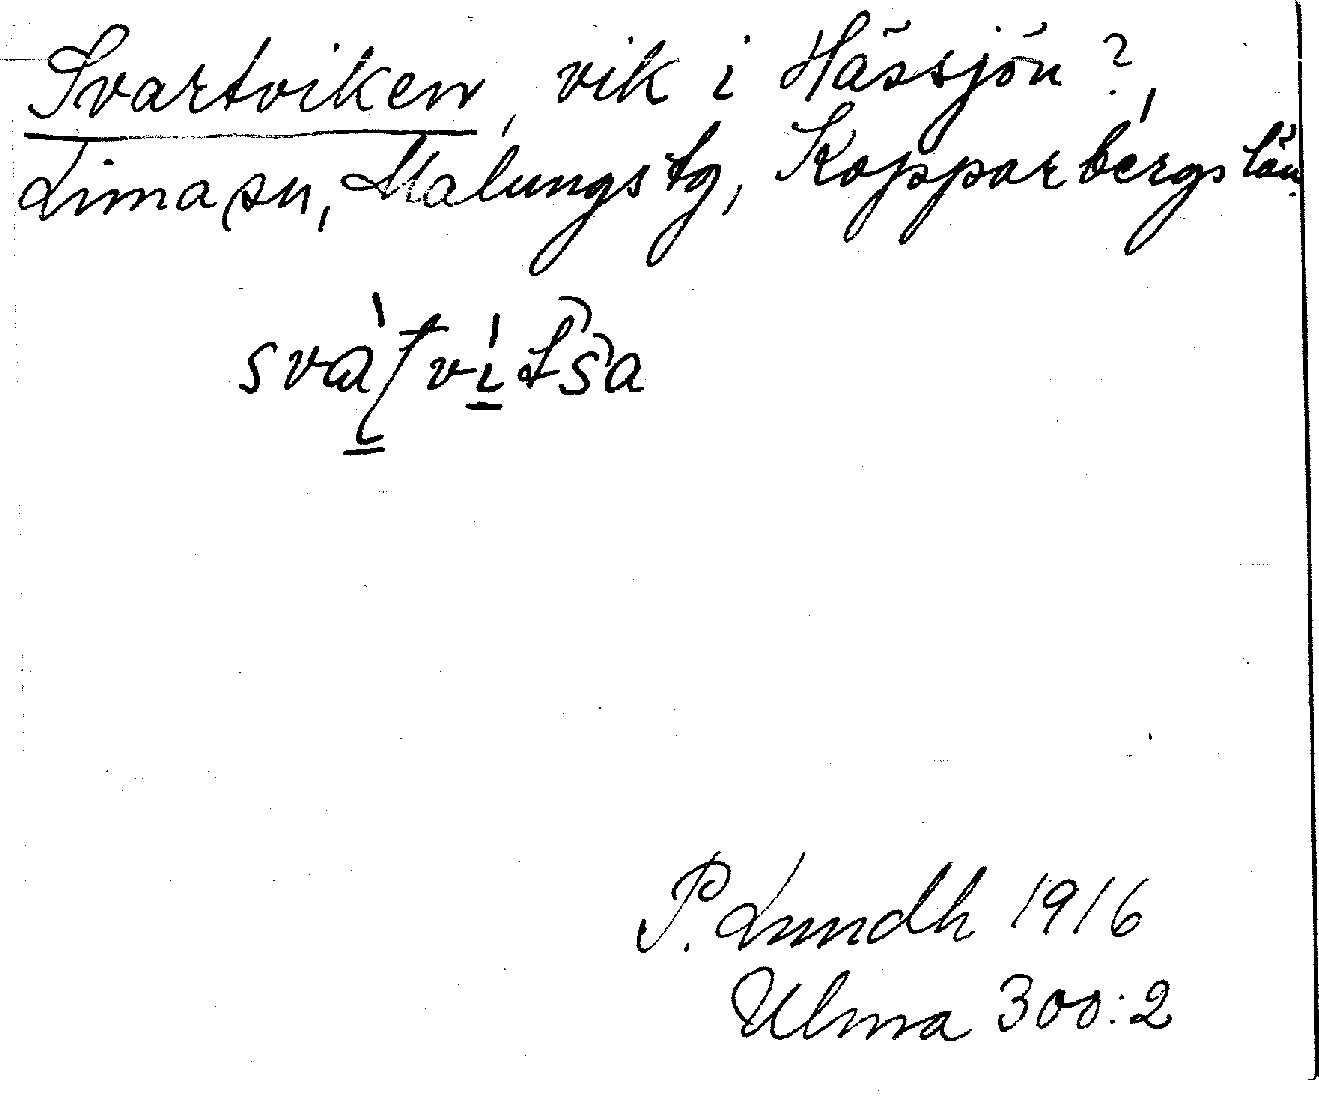 Svartviken, vik i Hässjön?,
Lima sn, Malungs tg, Kopparbergs län.
P. Lundh 1916
Ulma 300:2